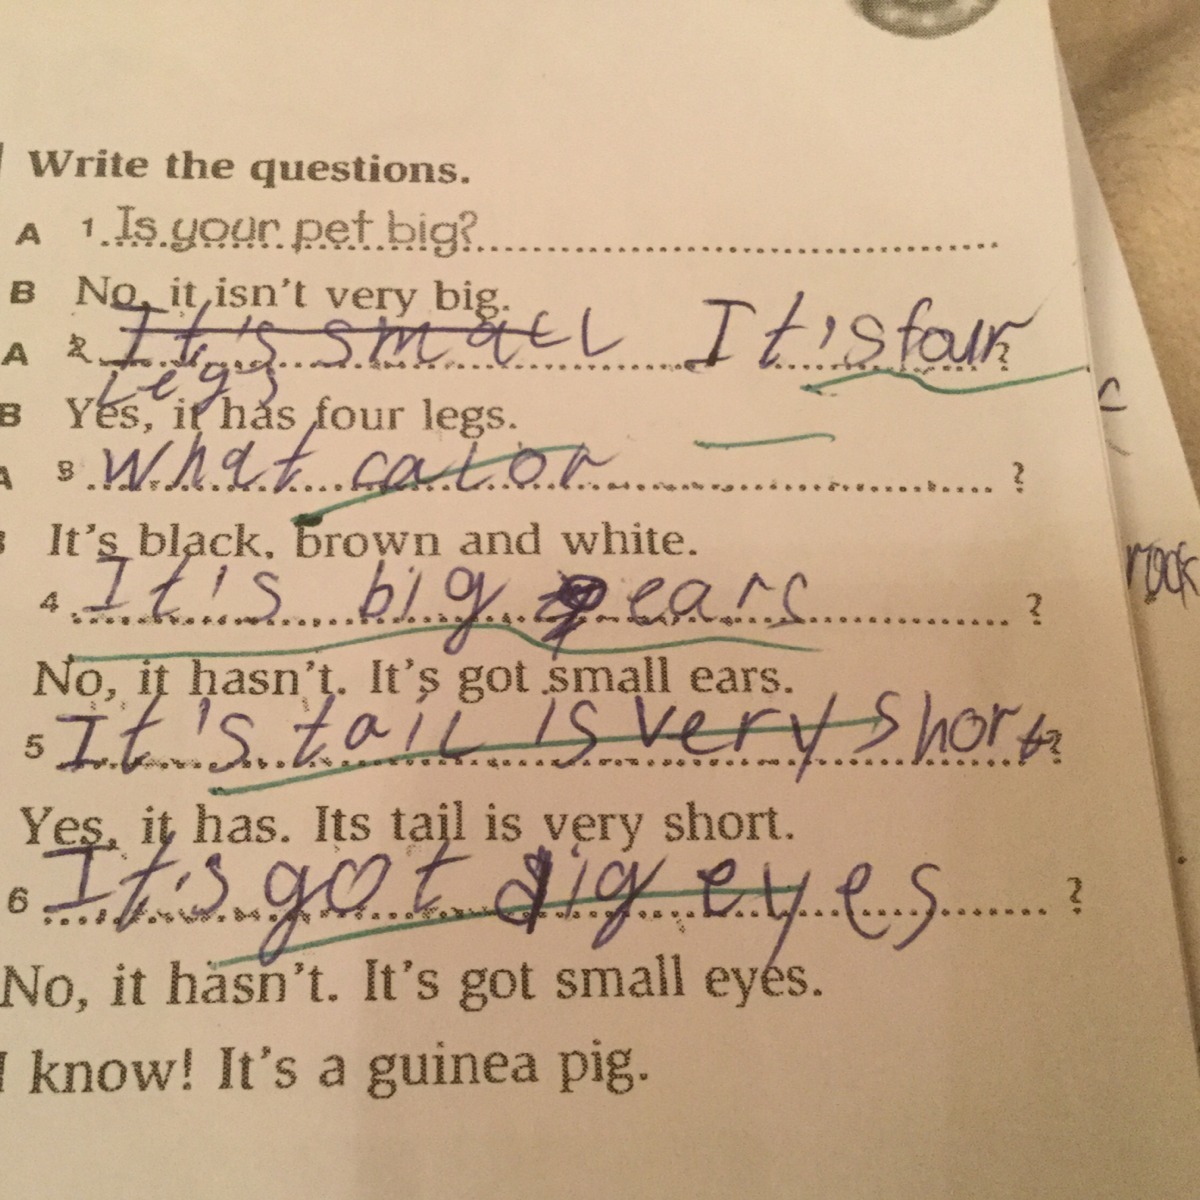 Write the questions.
A 1 Is your pet big?
B No, it isn't very big.
A 2 It's small It's four ?
Legs
B Yes, it has four legs.
A 3 What calor ?
It's black, brown and white.
4 It's big ears ?
No, it hasn't. It's got small ears.
5 It's tail is very short ?
Yes, it has. Its tail is very short.
6 It's got big eyes ?
No, it hasn't. It's got small eyes.
I know! It's a guinea pig.